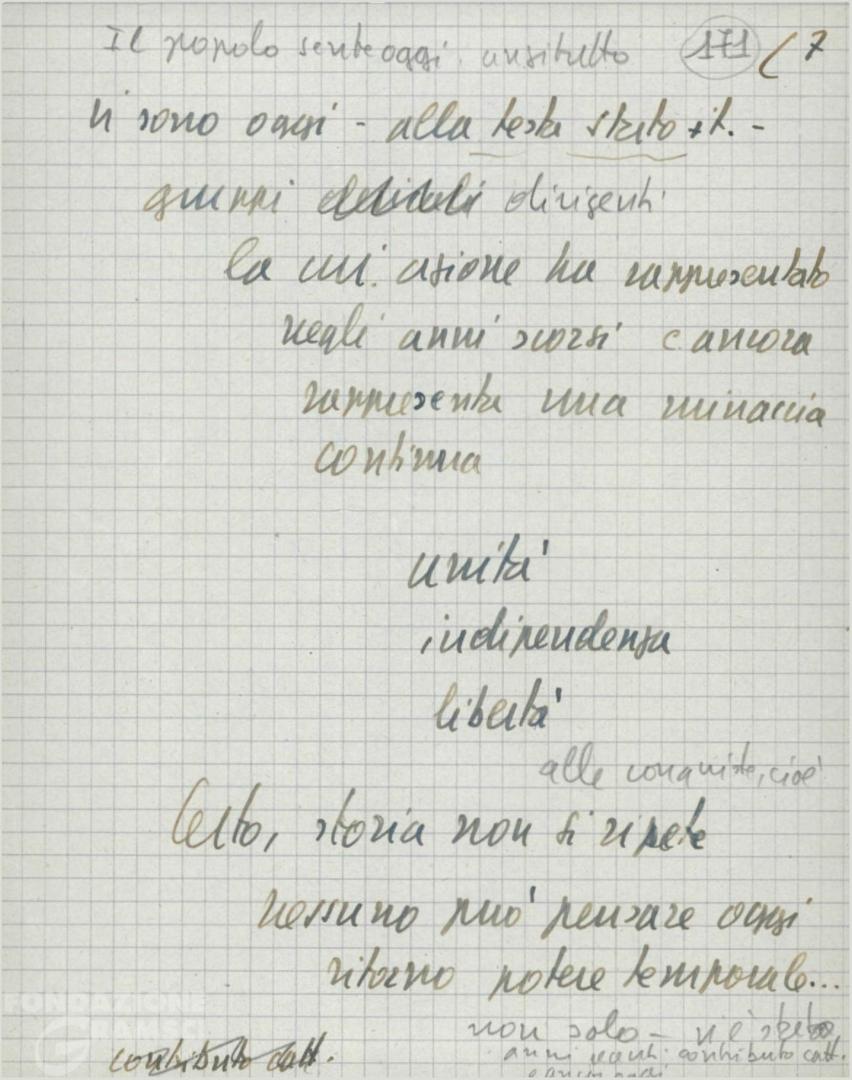 Il popolo sente oggi. anzitutto 171 7
Vi sono oggi - alla testa stato it. -
gruppi dirigenti
la cui azione ha rappresentato
negli anni scorsi e ancora
rappresenta una minaccia
continua
unità
indipendenza
libertà
alle conquiste, cioè
Certo, storia non si ripete
nessuno può pensare oggi
ritorno potere temporale...
non solo - vi è stato
contributo catt.
anni recenti contributo catt.
FONDAZIONE
GRAMSCI